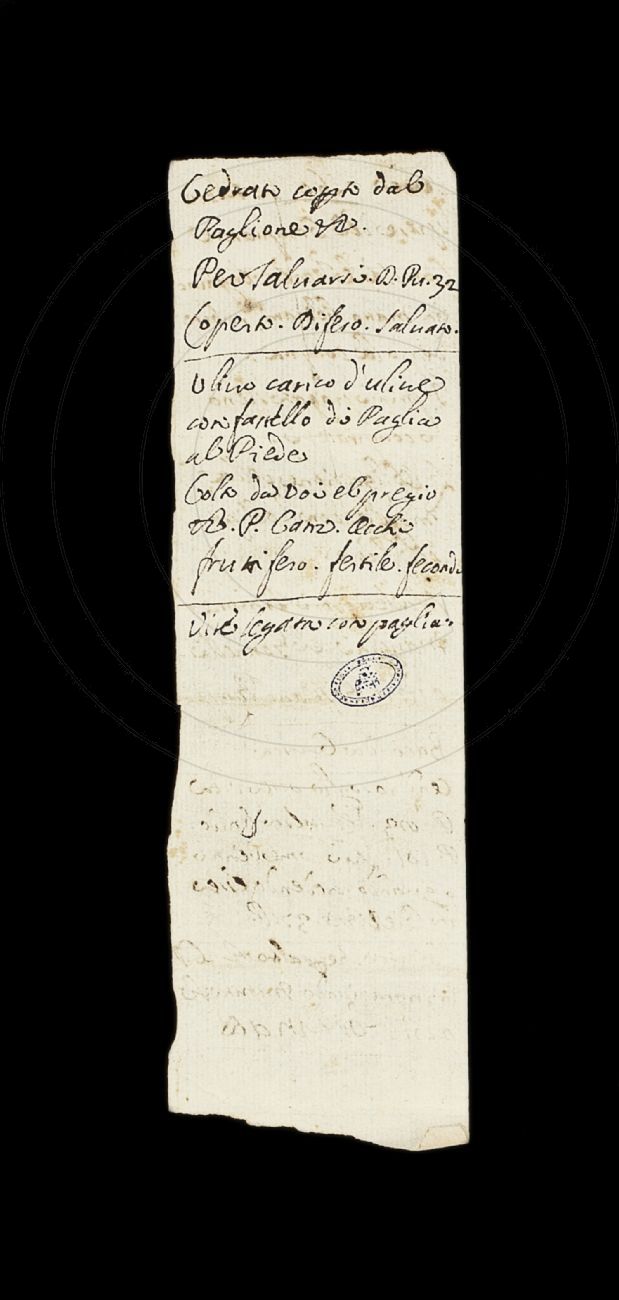 Cedrato copto dal
Paglione
Per Salvarsi. D. Pu. 32
Coperto. Difeso. Salvato.
Ulivo carico d'ulive
con fastello di Paglia
al Piede
Colto da voi el pregio
P. Canz.
fruttifero. fertile. fecondo
Vite legata con paglia.